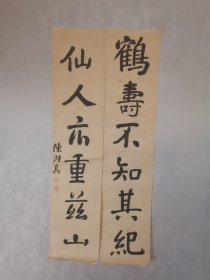 鶴壽不知其紀
仙人亦重茲山
陳澍真